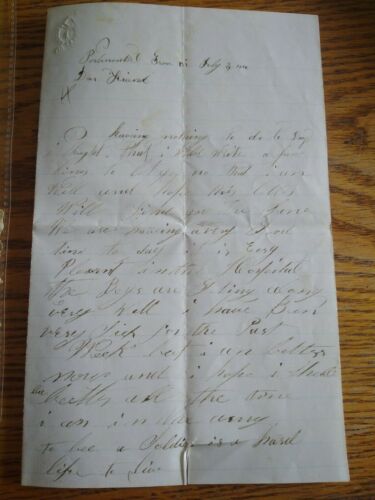 July
Dear Friend
having nothing to do to Day
i thought that i Wold Write a few
lines to let you no that i am
Well and hope this letter
Will find you the same
We are having a very
time to day it is very
Plesent in the Hospital
the Boys are giting along
very Well i have Ben
very Sick for the Past
Week but i am better
nough and i hope i shal
be
keep Well all the time
i am in the army
to be a Soldier is a hard
life to live